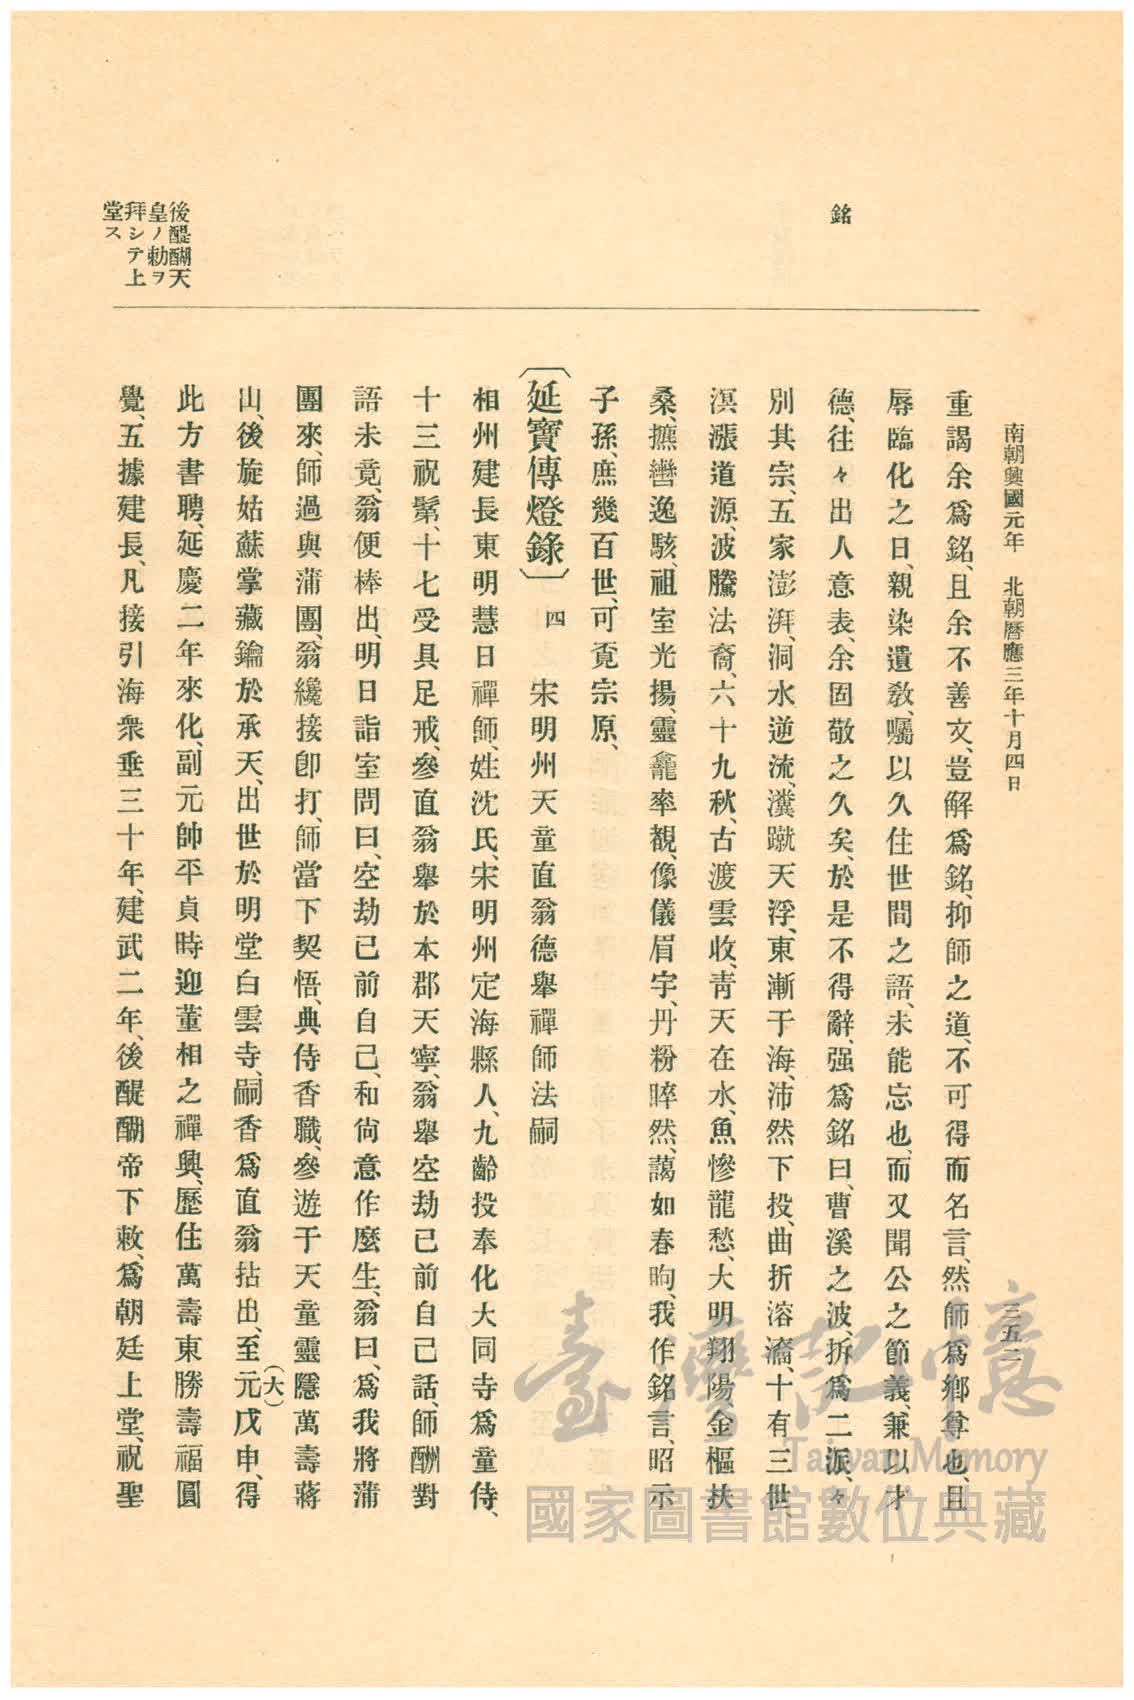 南朝興國元年　北朝曆應三年十月四日
三五二
銘
重謁余爲銘、且余不善文、豈解爲銘、抑師之道、不可得而名言、然師爲鄉尊也、且
辱臨化之日、親染遺敎、囑以久住世間之語、未能忘也、而又聞公之節義、兼以才
德、往々出人意表、余固敬之久矣、於是不得辭、强爲銘曰、曹溪之波、拆爲二派、々
別其宗、五家澎湃、洞水逆流、瀵蹴天浮、東漸于海、沛然下投、曲折溶瀹、十有三世、
溟漲道源、波騰法裔、六十九秋、古渡雲收、靑天在水、魚慘龍愁、大明翔陽、金樞扶
桑、攦轡逸駭、祖室光揚、靈龕率覩、像儀眉宇、丹粉睟然、藹如春昫、我作銘言、昭示
子孫、庶幾百世、可覔宗原、
〔延寶傳燈錄〕四　宋明州天童直翁德舉禪師法嗣
相州建長東明慧日禪師、姓沈氏、宋明州定海縣人、九齡投奉化大同寺爲童侍、
十三祝髮、十七受具足戒、參直翁舉於本郡天寧、翁舉空劫已前自己話、師酬對
語未竟、翁便棒出、明日詣室問曰、空劫已前自己、和尙意作麼生、翁曰、爲我將蒲
團來、師過與蒲團、翁纔接卽打、師當下契悟、典侍香職、參遊于天童靈隱萬壽蔣
山、後旋姑蘇掌藏鑰於承天、出世於明堂白雲寺、嗣香爲直翁拈出、至元(大)戊申、得
此方書聘、延慶二年來化、副元帥平貞時迎董相之禪興、歷住萬壽東勝壽福圓
覺、五據建長、凡接引海衆垂三十年、建武二年、後醍醐帝下敕、爲朝廷上堂、祝聖
後醍醐天
皇ノ勅ヲ
拜シテ上
堂ス
臺灣記憶
Taiwan Memory
國家圖書館數位典藏